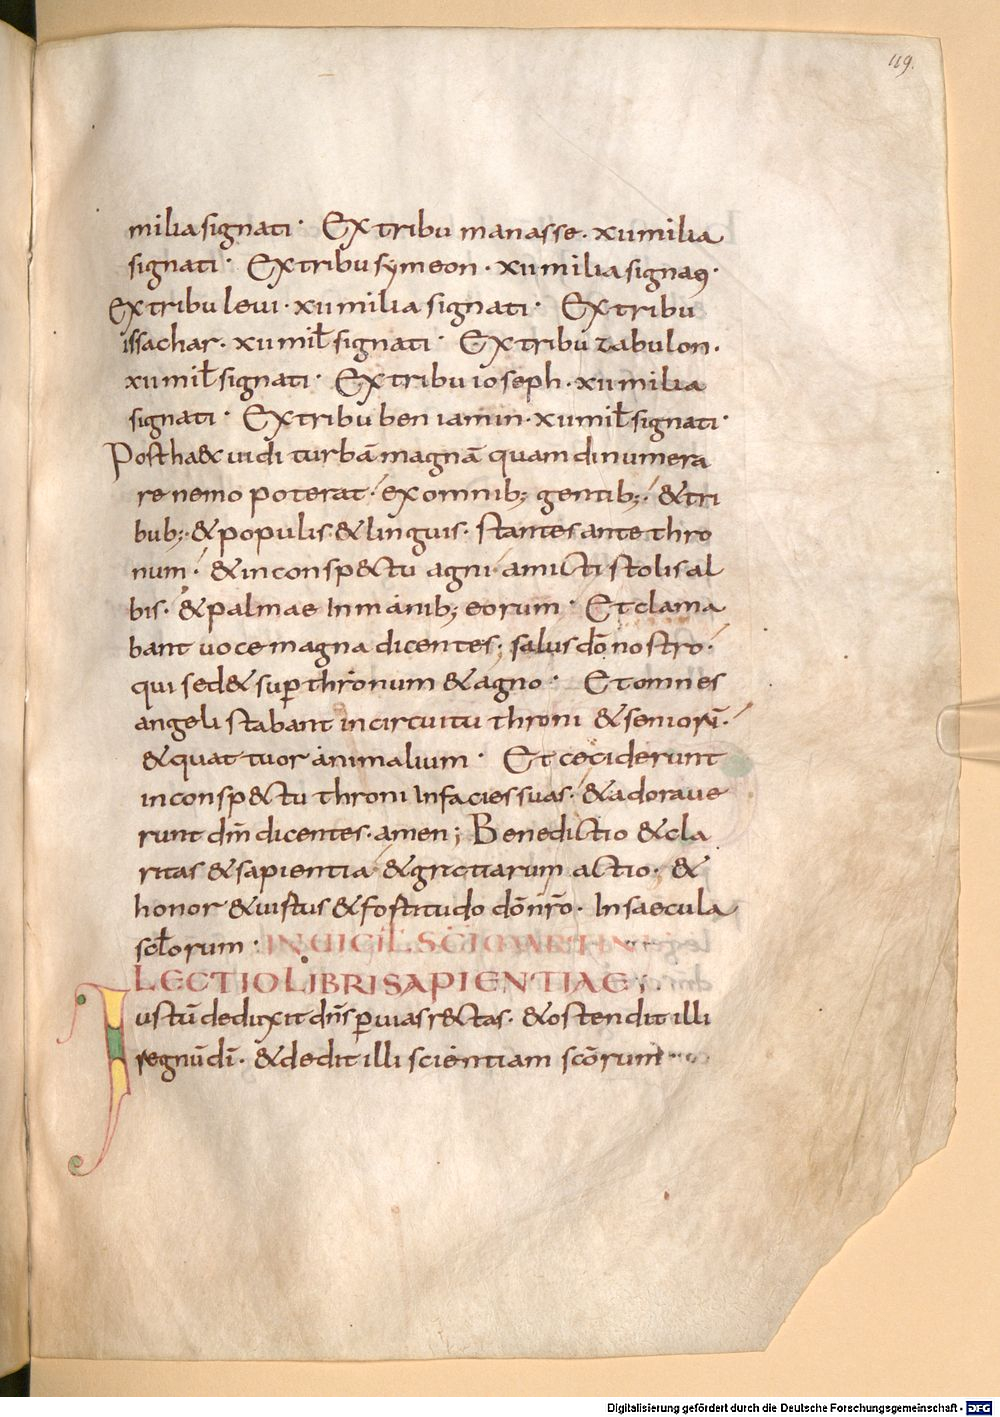 119.
milia signati · Ex tribu manasse · xii milia
signati · Ex tribu symeon · xii milia signaꝯ ·
Ex tribu leui · xii milia signati · Ex tribu
issachar · xii mił signati · Ex tribu zabulon ·
xii mił signati · Ex tribu ioseph · xii milia
signati · Ex tribu beniamin · xii mił signati ·
Post ha&c uidi turbā magnā quam dinumera
re nemo poterat · ex omnib; gentib; · & tri
bub; · & populis · & linguis · stantes ante thro
num · & in consp&ctu agni · amicti stolis al
bis · & palmae in manib; eorum · Et clama
bant uoce magna dicentes; salus dō nostro ·
qui sed& sup̄ thronum & agno · Et omnes
angeli stabant in circuitu throni & seniorū ·
& quattuor animalium · Et ceciderunt
in consp&ctu throni in facies suas · & adoraue
runt dm̄ dicentes · amen; Benedictio & cla
ritas & sapientia & gratiarum actio · &
honor & uirtus & fortitudo dō nr̄o · In saecula
scł̄orum · IN UIGIL · SCI MARTINI
LECTIO LIBRI SAPIENTIAE;
Iustū deduxit dn̄s p̄ uias r&ctas · & ostendit illi
regnū dī · & dedit illi scientiam scōrum
Digitalisierung gefördert durch die Deutsche Forschungsgemeinschaft - DFG